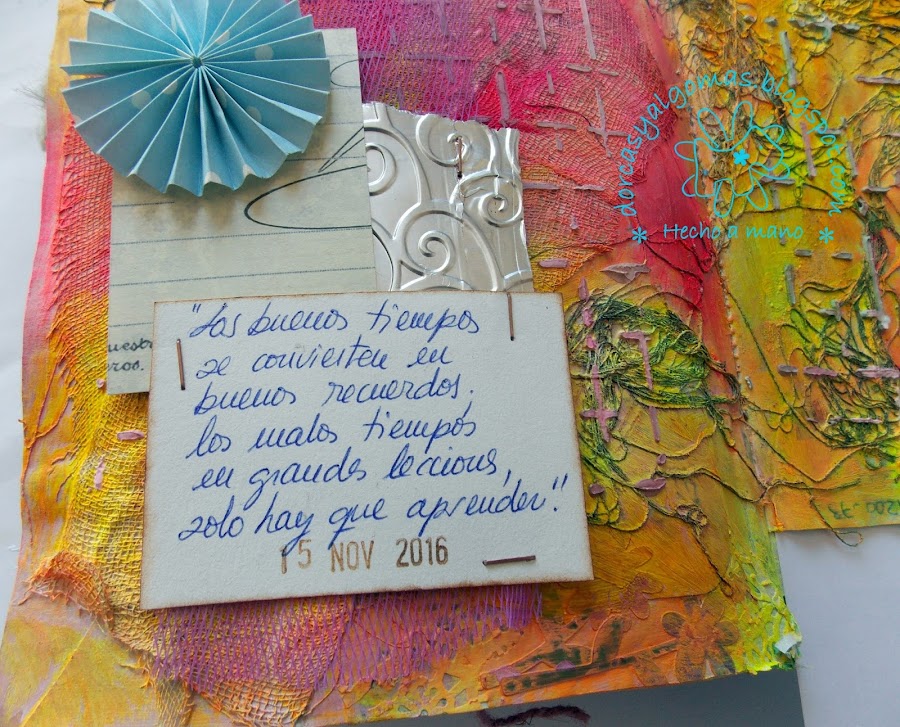 dorcasyalgomas.blogspot.com
* Hecho a mano *
"Los buenos tiempos
se convierten en
buenos recuerdos,
los malos tiempos
en grandes lecciones,
solo hay que aprender."
15 NOV 2016
ros.